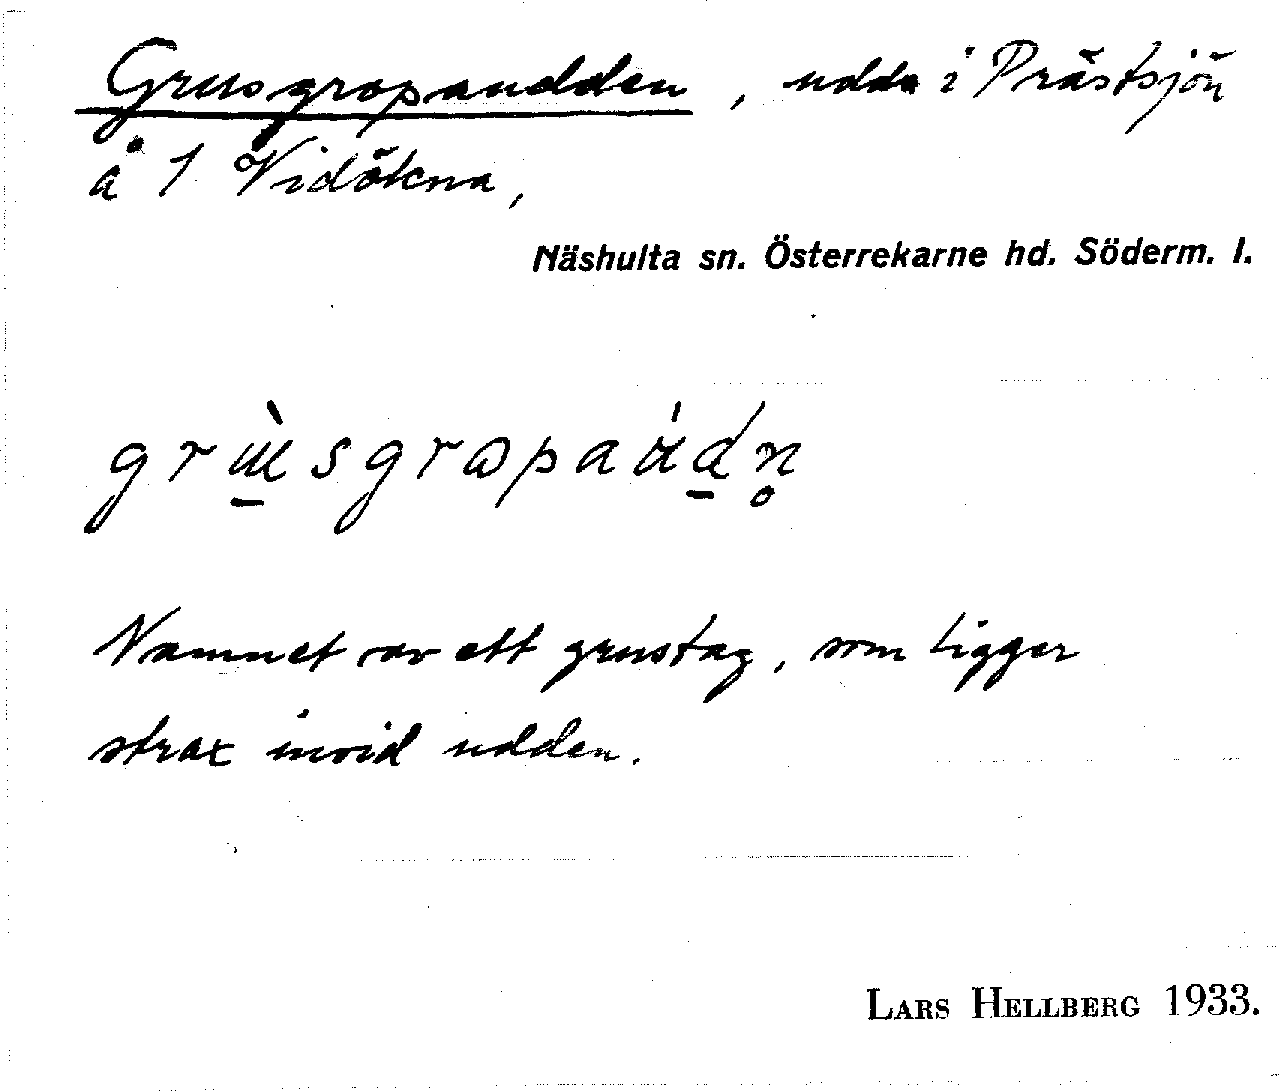 Grusgropaudden, udde i Prästsjön
å 1 Vidökna,
Näshulta sn. Österrekarne hd. Söderm. l.
Namnet av ett grustag, som ligger
strax invid udden.
LARS HELLBERG 1933.